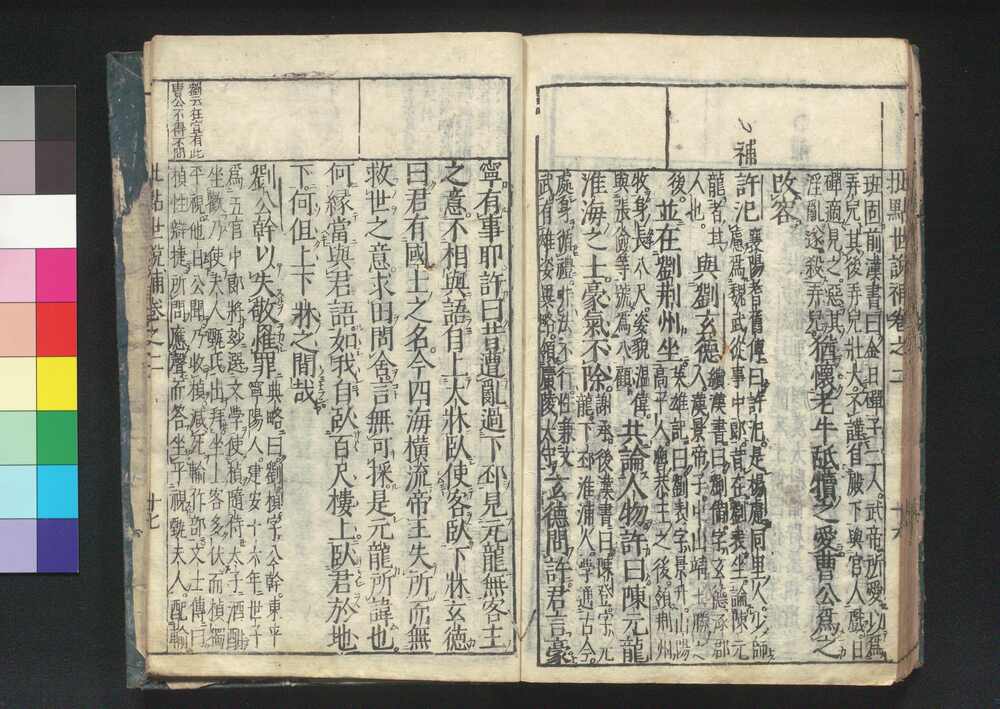 批點世說補卷之二 十六
班固前漢書曰金日磾子二人武帝所愛以爲
弄兒其後弄兒壯大不謹自殿下與宮人戲日
磾適見之惡其
淫亂遂殺弄兒猶懷老牛舐犢之愛曹公爲之
改容
補
許汜襄陽耆舊傳曰許汜是楊慮同里人少師
慮爲魏武從事中郎昔在劉表坐論陳元
龍者其
人也與劉玄德續漢書曰劉備字玄德涿郡
人漢景帝子中山靖王勝之
後並在劉荊州坐英雄記曰劉表字景升山陽
高平人魯恭王之後領荊州
牧身長八尺姿貌溫偉
與張儉等號爲八顧共論人物許曰陳元龍
淮海之士豪氣不除謝承後漢書曰陳登字元
龍下邳淮浦人學通古今
處身循禮非法不行性兼文
武有雄姿異略領廣陵太守玄德問許君言豪
寧有事耶許曰昔遭亂過下邳見元龍無客主
之意不相與語有上大牀臥使客臥下牀玄德
曰君有國士之名今四海橫流帝王失所而無
救世之意求田問舍言無可採是元龍所諱也
何緣當與君語如我自臥百尺樓上臥君於地
下何但上下牀之間哉
劉公幹以失敬罹罪典略曰劉楨字公幹東平
寧陽人建安十六年世子
爲五官中郎將妙選文學使楨隨侍太子酒酣
坐歡乃使夫人甄氏出拜坐上客多伏而楨獨
平視他日公聞乃收楨減死輸作部文士傳曰
楨性辯捷所問應聲而答坐平視甄夫人配輸
劉云在官有此
曹公不得不問
批點世說補卷之二 十七